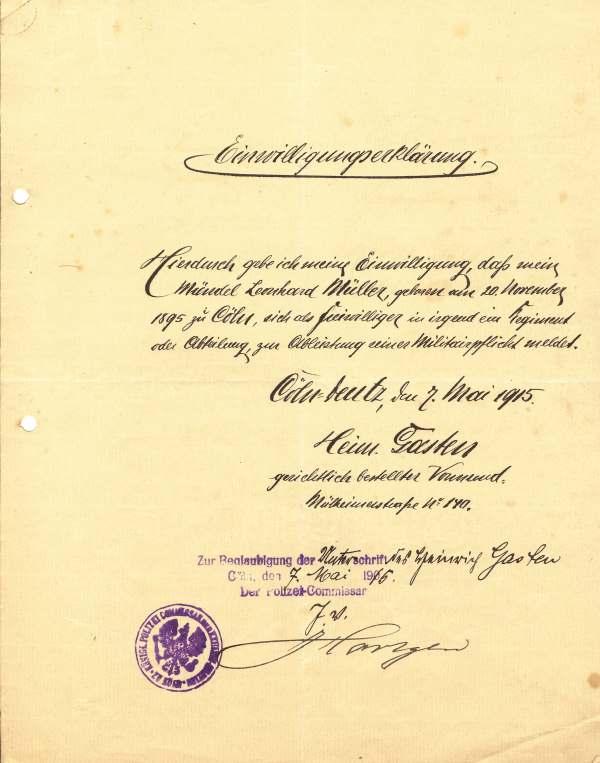 Einwilligungserklärung.
Hierdurch gebe ich meine Einwilligung, daß mein
Mündel Leonhard Müller, geboren am 20. November
1895 zu Cöln, sich als Freiwilliger in irgend ein Regiment
oder Abteilung, zur Ableistung einer Militairpflicht meldet.
Cöln-Deutz, den 7. Mai 1915.
Heinr. Gasten
gerichtlich bestellter Vormund.
Mülheimerstraße No 140.
Zur Beglaubigung der Unterschrift des Heinrich Gasten
Cöln, den 7. Mai 1915.
Der Polizei-Commissar
J. V.
KÖNIGL. POLIZEI COMMISSAR